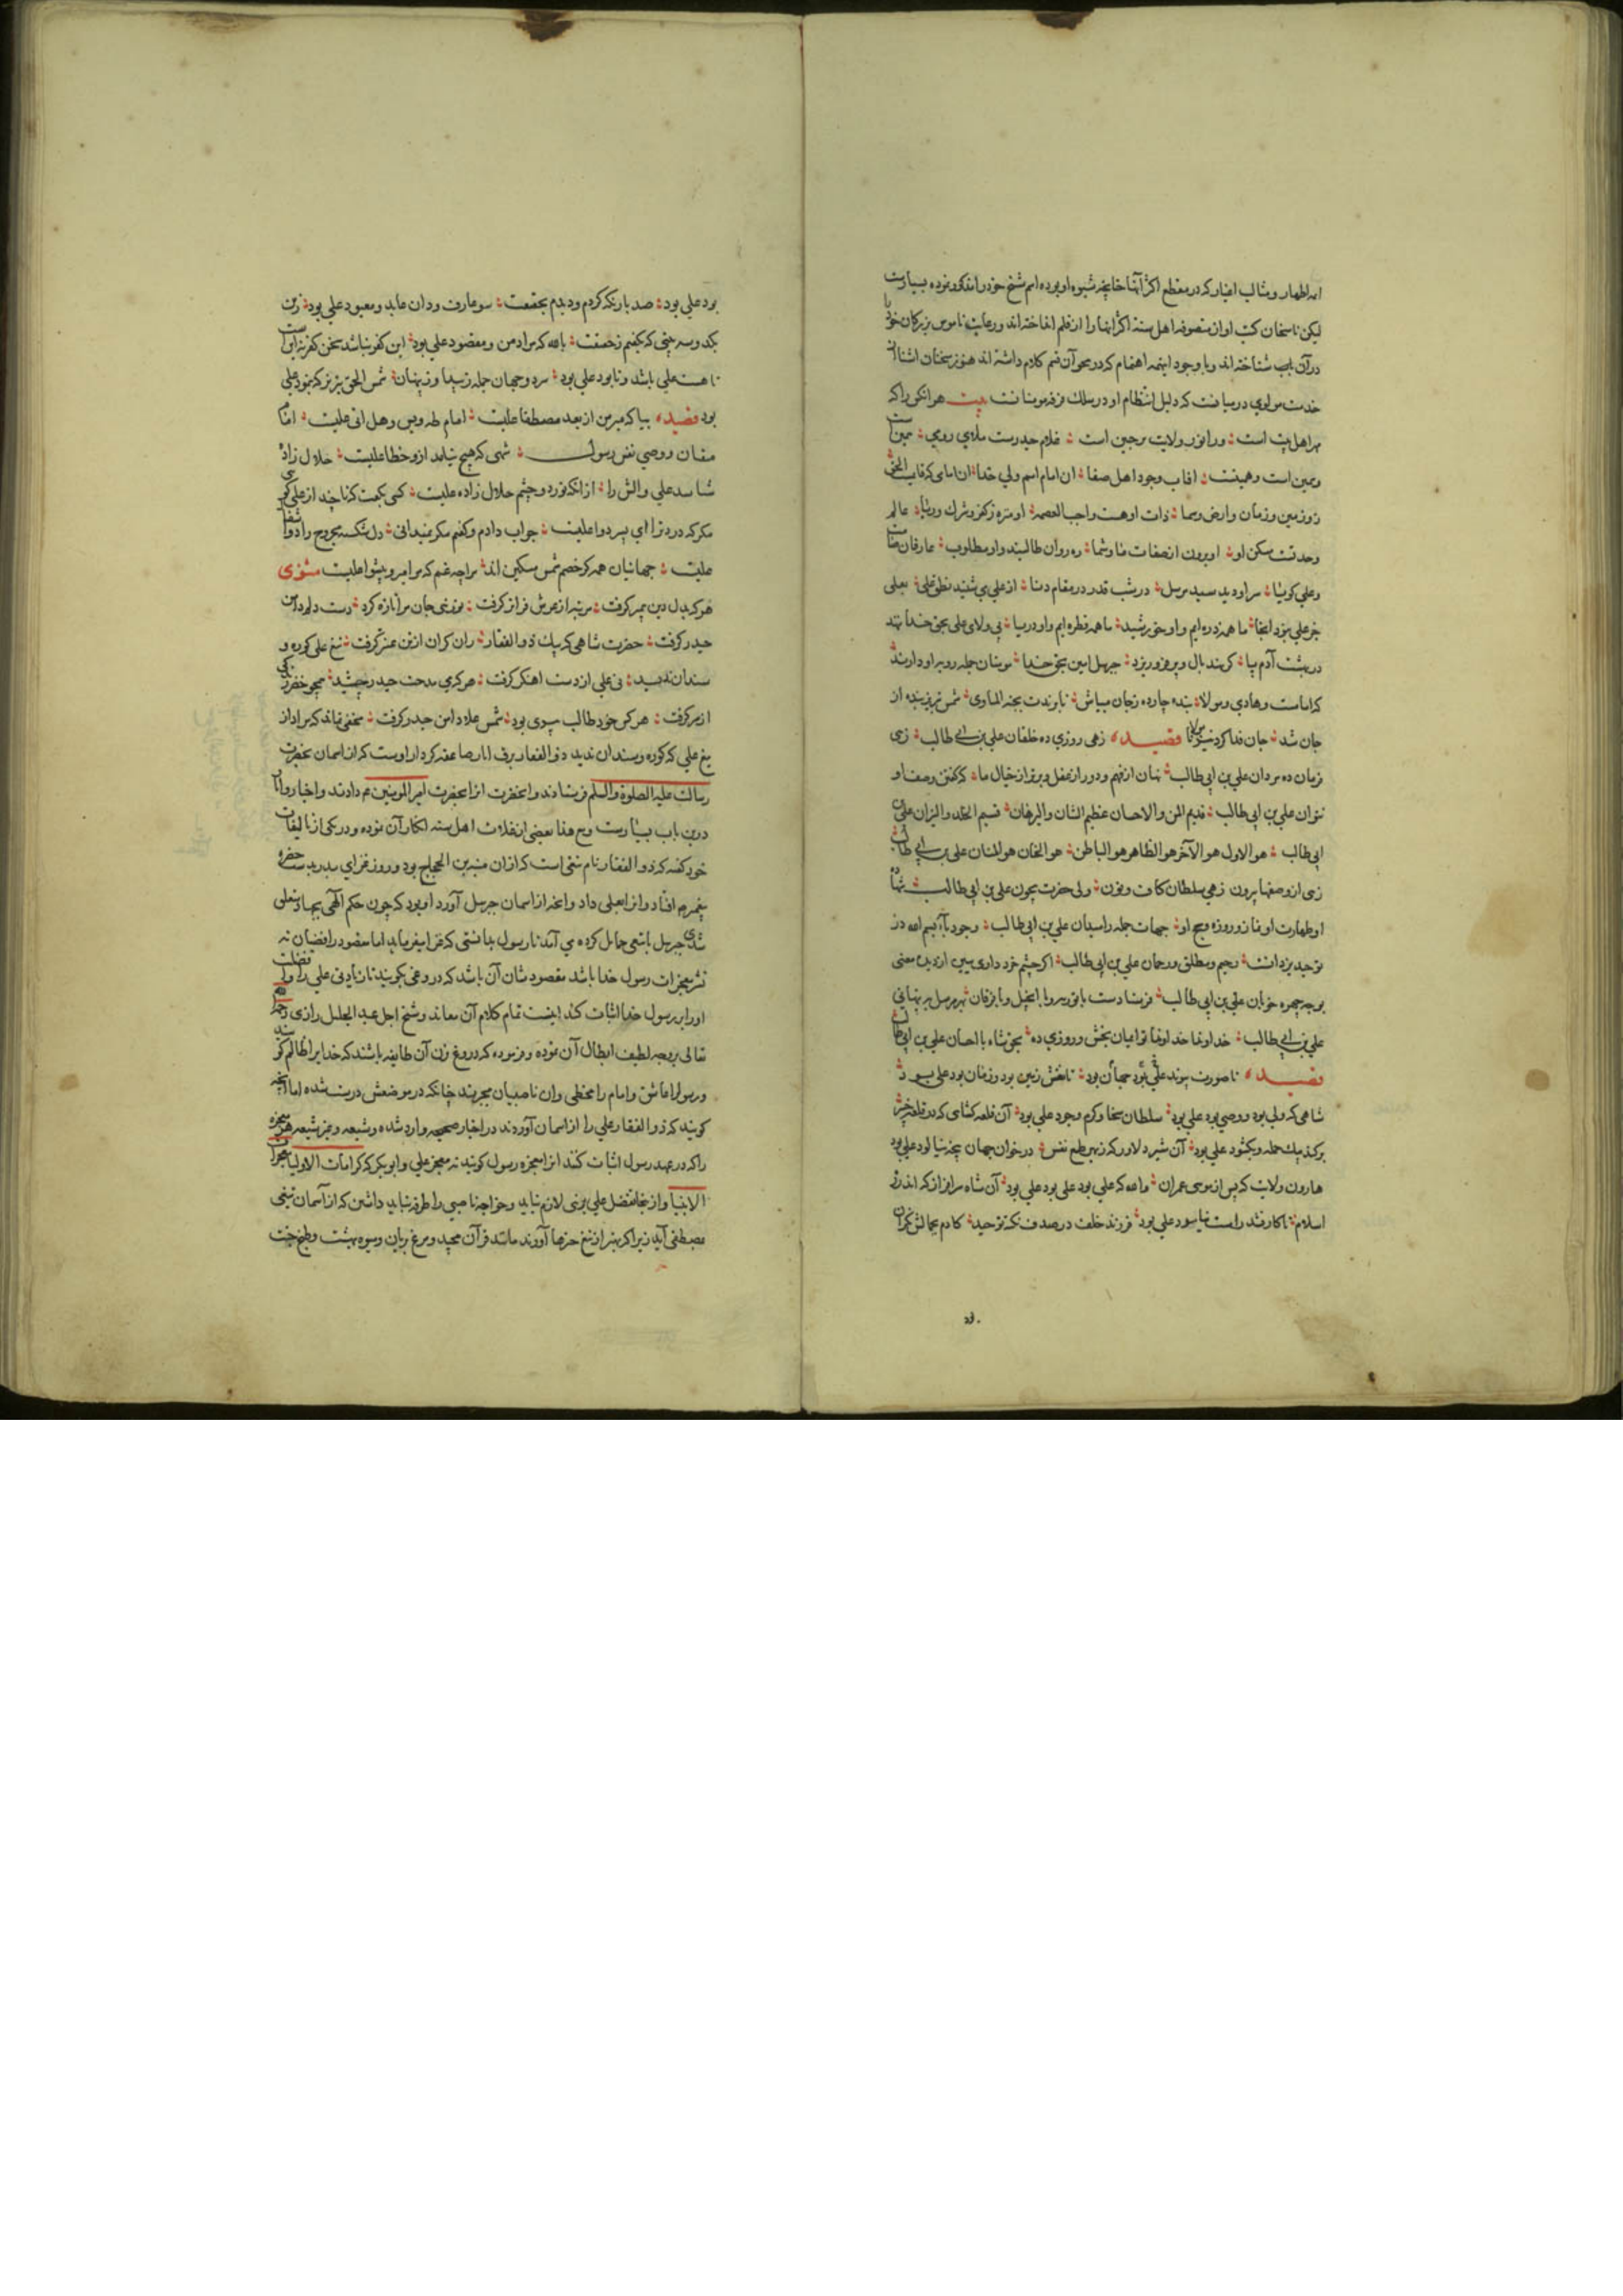 اند اظهار و مثالب اغیار که در مقطع اکثر آنها چنانچه شیوه او بوده اسم شیخ خود را مذکور نموده بسیارست
لیکن ناسخان کتب او از متصوفه اهل سنة اکثر آنها را از قلم انداخته اند و رعایت ناموس بزرگان خود را
در آن باب شناخته اند و با وجود اینهمه اهتمام که در محو آن قسم کلام داشته اند هنوز سخنان
خدمت مولوی در میانست که دلیل انتظام او در سلک فرقه مومنانست بیت هر آنکس را که
مهر اهل بیت است ورا نور ولایت بر جبین است غلام حیدرست ملای رومی همین است
و همین است و همینست آفتاب وجود اهل صفا آن امام اسم ولی خدا آن امامی که قایمست الحق
زو زمین و زمان و ارض و سما ذات او هست واجب العصمه او منزه ز کفر و شرک و ریا عالم
وحدتست مسکن او او برون از صفات ما و شما ره روان طالبند و او مطلوب عارفان صامت
و علی گویا سر او دید سید مرسل در شب قدر در مقام دنا از علی می شنید نطق علی بعلی
جز علی نبود آنجا ما همه ذره ایم و او خورشید ما همه قطره ایم و او دریا بی ولای علی بحق خدا ننهد
در بهشت آدم پا گر بند بال و پر فرو ریزد جبرئیل امین بحق خدا مومنان جمله رو براو دارند
کامامست و هادی و مولا بنده چارده ز جان میباش تا برندت بجنة الماوی شمس تبریز بنده از
جان شد جان فدا کرد نیز مولانا قصیده زهی روزی ده خلقان علی بن ابی طالب زهی
فرمان ده مردان علی بن ابی طالب نهان از فهم و دور از عقل و برتر از خیال ما که گفتن وصف او
نتوان علی بن ابی طالب قدیم المن والاحسان عظیم الشان والبرهان قسیم الخلد والنیران علی بن
ابی طالب هو الاول هو الآخر هو الظاهر هو الباطن هو الحنان هو المنان علی بن ابی طالب
زهی از وصفها بیرون زهی سلطان کاف و نون ولی حضرت بیچون علی بن ابی طالب شهادة
او طهارت او نماز و روزه و حج او جهات جمله را میدان علی بن ابی طالب وجود باء بسم الله در
توحید یزدانست رحیم و مطلق و رحمان علی بن ابی طالب اگر چشم خرد داری ببین از دیدن معنی
بوجه چهره خوبان علی بن ابی طالب فرستادست با توریة و با انجیل و با فرقان بهر مرسل به پنهانی
علی بن ابی طالب خداوندا خداوندا تو ایمان بخش و روزی ده بحق شاه با احسان علی بن ابی طالب
قصیده تا صورت پیوند جهان بود علی بود تا نقش زمین بود و زمان بود علی بود
شاهی که ولی بود و وصی بود علی بود سلطان سخا و کرم وجود علی بود آن قلعه گشای که در قلعه خیبر
برکند بیک حمله و بگشود علی بود آن شیر دلاور که ز بهر طمع نفس در خوان جهان پنجه نیالود علی بود
هارون ولایت که پس از موسی عمران والله که علی بود علی بود علی بود آن شاه سرافراز که اندر ره
اسلام تا کار نشد راست نیاسود علی بود فرزند خلف در صدف نکته توحید کادم بجمالش نگران
بود علی بود صد بار نکه کردم و دیدم بحقیقت سو عارف ودان عابد و معبود علی بود زین
یکدو سه بیتی که بگفتم ز حقیقت بالله که مراد من و مقصود علی بود این کفر نباشد سخن کفر نه اینست
تا هست علی باشد و تا بود علی بود سر دو جهان جمله ز پیدا و ز پنهان شمس الحق تبریز که بنمود علی
بود قصیده بیا که میر من از بعد مصطفا علیست امام طه و یس و هل اتی علیست امام
متقیان و وصی نفس رسول شهی که هیچ نیامد ازو خطا علیست حلال زاده
شناسد علی و آلش را از انکه نور دو چشم حلال زاده علیست کسی بگفت که تا چند از علی گویی
مگر که درد ترا ای پسر دوا علیست جواب دادم و گفتم مگر نمیدانی دل شکسته مجروح را دوا
علیست جهانیان همه گر خصم شمس مسکین اند مرا چه غم که مرا میر و پیشوا علیست مثنوی
هر که بدل دین پیمبر گرفت مرتبه از عرش فراتر گرفت جان مرا تازه کرد دست دلم دامن
حیدر گرفت حضرت شاهی که بیک ذوالفقار ران گران از تن عنتر گرفت تیغ علی کوره و
سندان ندید نی علی از دست آهنگر گرفت هر که می مدحت حیدر چشید همچو خضر
از سر گرفت هر کس خود طالب میری بود شمس علا دامن حیدر گرفت مخفی نماند که مراد از
تیغ علی که کوره و سندان ندید ذوالفقار برق آثار صاعقه کردار اوست که از آسمان بحضرت
رسالت علیه الصلوة والسلم فرستادند و آنحضرت آنرا بحضرت امیر المومنین ع م دادند و اخبار و آثار
درین باب بسیارست و مع هذا بعضی از فضلاء اهل سنه انکار آن نموده و در یکی از تالیفات
خود گفته که ذوالفقار نام تیغی است که از آن منبه بن الحجاج بود و روز غزای بدر بدست حضره
پیغمبر ص افتاد و آنرا بعلی داد و آنچه از آسمان جبرئیل آورد او بود که چون حکم الهی بجهاد متعلق
شدی جبرئیل با تیغی حمایل کرده می آمد تا رسول بدانستی که غزا میفرماید اما مقصود رافضیان نه
نشر معجزات رسول خدا باشد مقصودشان آن باشد که دروغی بگویند تا زیادتی علی را و فضیلت
او را بر رسول خدا اثبات کند اینست تمام کلام آن معاند و شیخ اجل عبد الجلیل رازی رحمه الله
تعالی بوجه لطیف ابطال آن نموده و فرموده که دروغ زن آن طایفه باشند که خدا را ظالم گویند
و رسول را عاشق و امام را مخطی و ان ناصبیان مجبرند چنانکه در موضعش درست شده اما آنچه
گویند که ذوالفقار علی را از آسمان آوردند در اخبار صحیحه وارد شده و شیعه و غیر شیعه هر معجزه
را که در عهد رسول اثبات کنند آنرا معجزه رسول گویند نه معجز علی و ابوبکر که کرامات الاولیا معجزات
الانبیا و از ینجا تفضل علی بر نبی لازم نیاید و خواجه ناصبی را طرفه نباید داشتن که از آسمان تیغی
بمصطفی آید زیرا که بهتر از تیغ چیزها آوردند مانند قرآن مجید و مرغ بریان و میوه بهشت و طبخ پخت